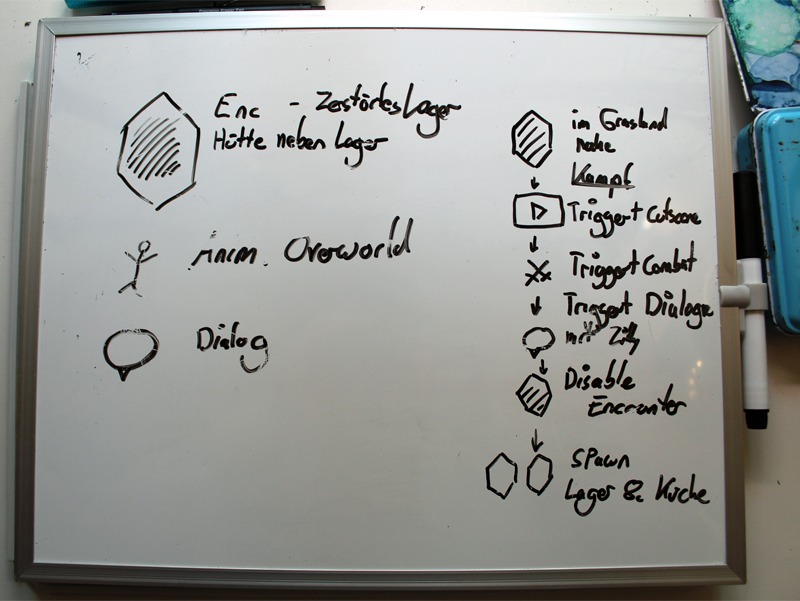 Enc - Zerstörtes Lager
Hütte neben Lager
Overworld
Dialog
im Grasland
nahe
Kampf
Triggert Cutscene
Triggert Combat
Triggert Dialoge
mit
Disable
Encounter
Spawn
Lager & Küche